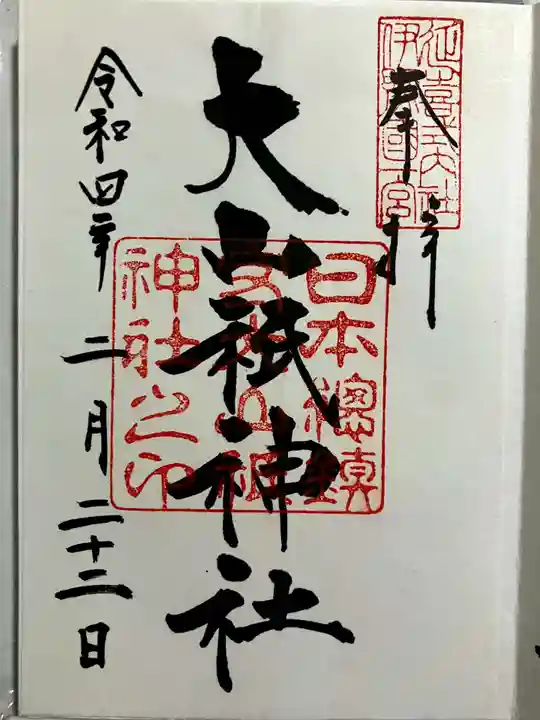 奉拝
延喜式大社
伊予国一宮
大山祇神社
日本總鎮
大山祇
神社之印
令和四年二月二十二日